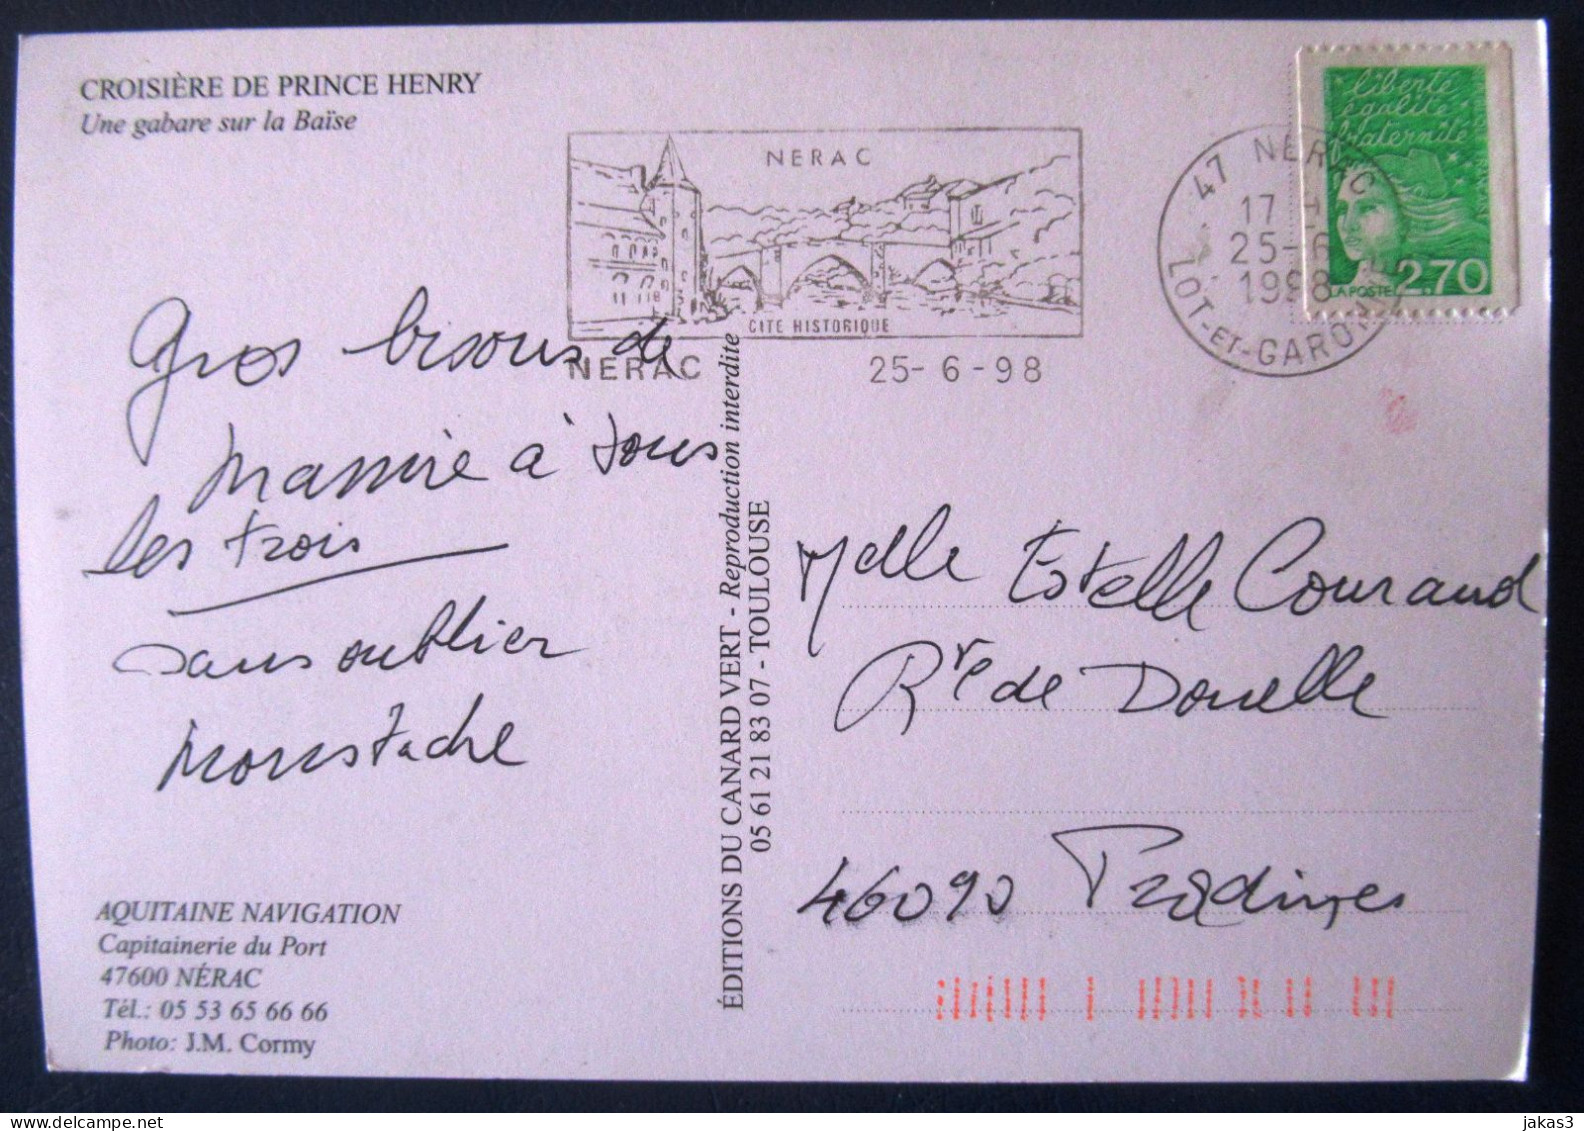 CROISIÈRE DE PRINCE HENRY
Une gabare sur la Baïse
NERAC
CITE HISTORIQUE
NERAC 25-6-98
47 NERAC
17
25-6
1998
LOT-ET-GARONNE
liberté
égalité
fraternité
LA POSTE 2,70
Gros bisous de
Mamie à tous
les trois
sans oublier
Moustache
AQUITAINE NAVIGATION
Capitainerie du Port
47600 NÉRAC
Tél.: 05 53 65 66 66
Photo: J.M. Cormy
ÉDITIONS DU CANARD VERT - Reproduction interdite
05 61 21 83 07 - TOULOUSE
Melle Estelle Couraud
Rte de Douelle
46090 Pradines
delcampe.net
jakas3